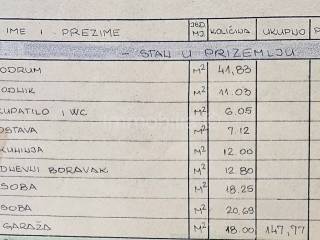 IME I PREZIME JED. MJ. KOLIČINA UKUPNO
- STAN U PRIZEMLJU
ODRUM M² 41,83
ODNIK M² 11.03
UPATILO I WC M² 6.05
OSTAVA M² 7.12
KUHINJA M² 12.00
DNEVNI BORAVAK M² 12.80
SOBA M² 18.25
SOBA M² 20.69
GARAŽA M² 18.00 147,77